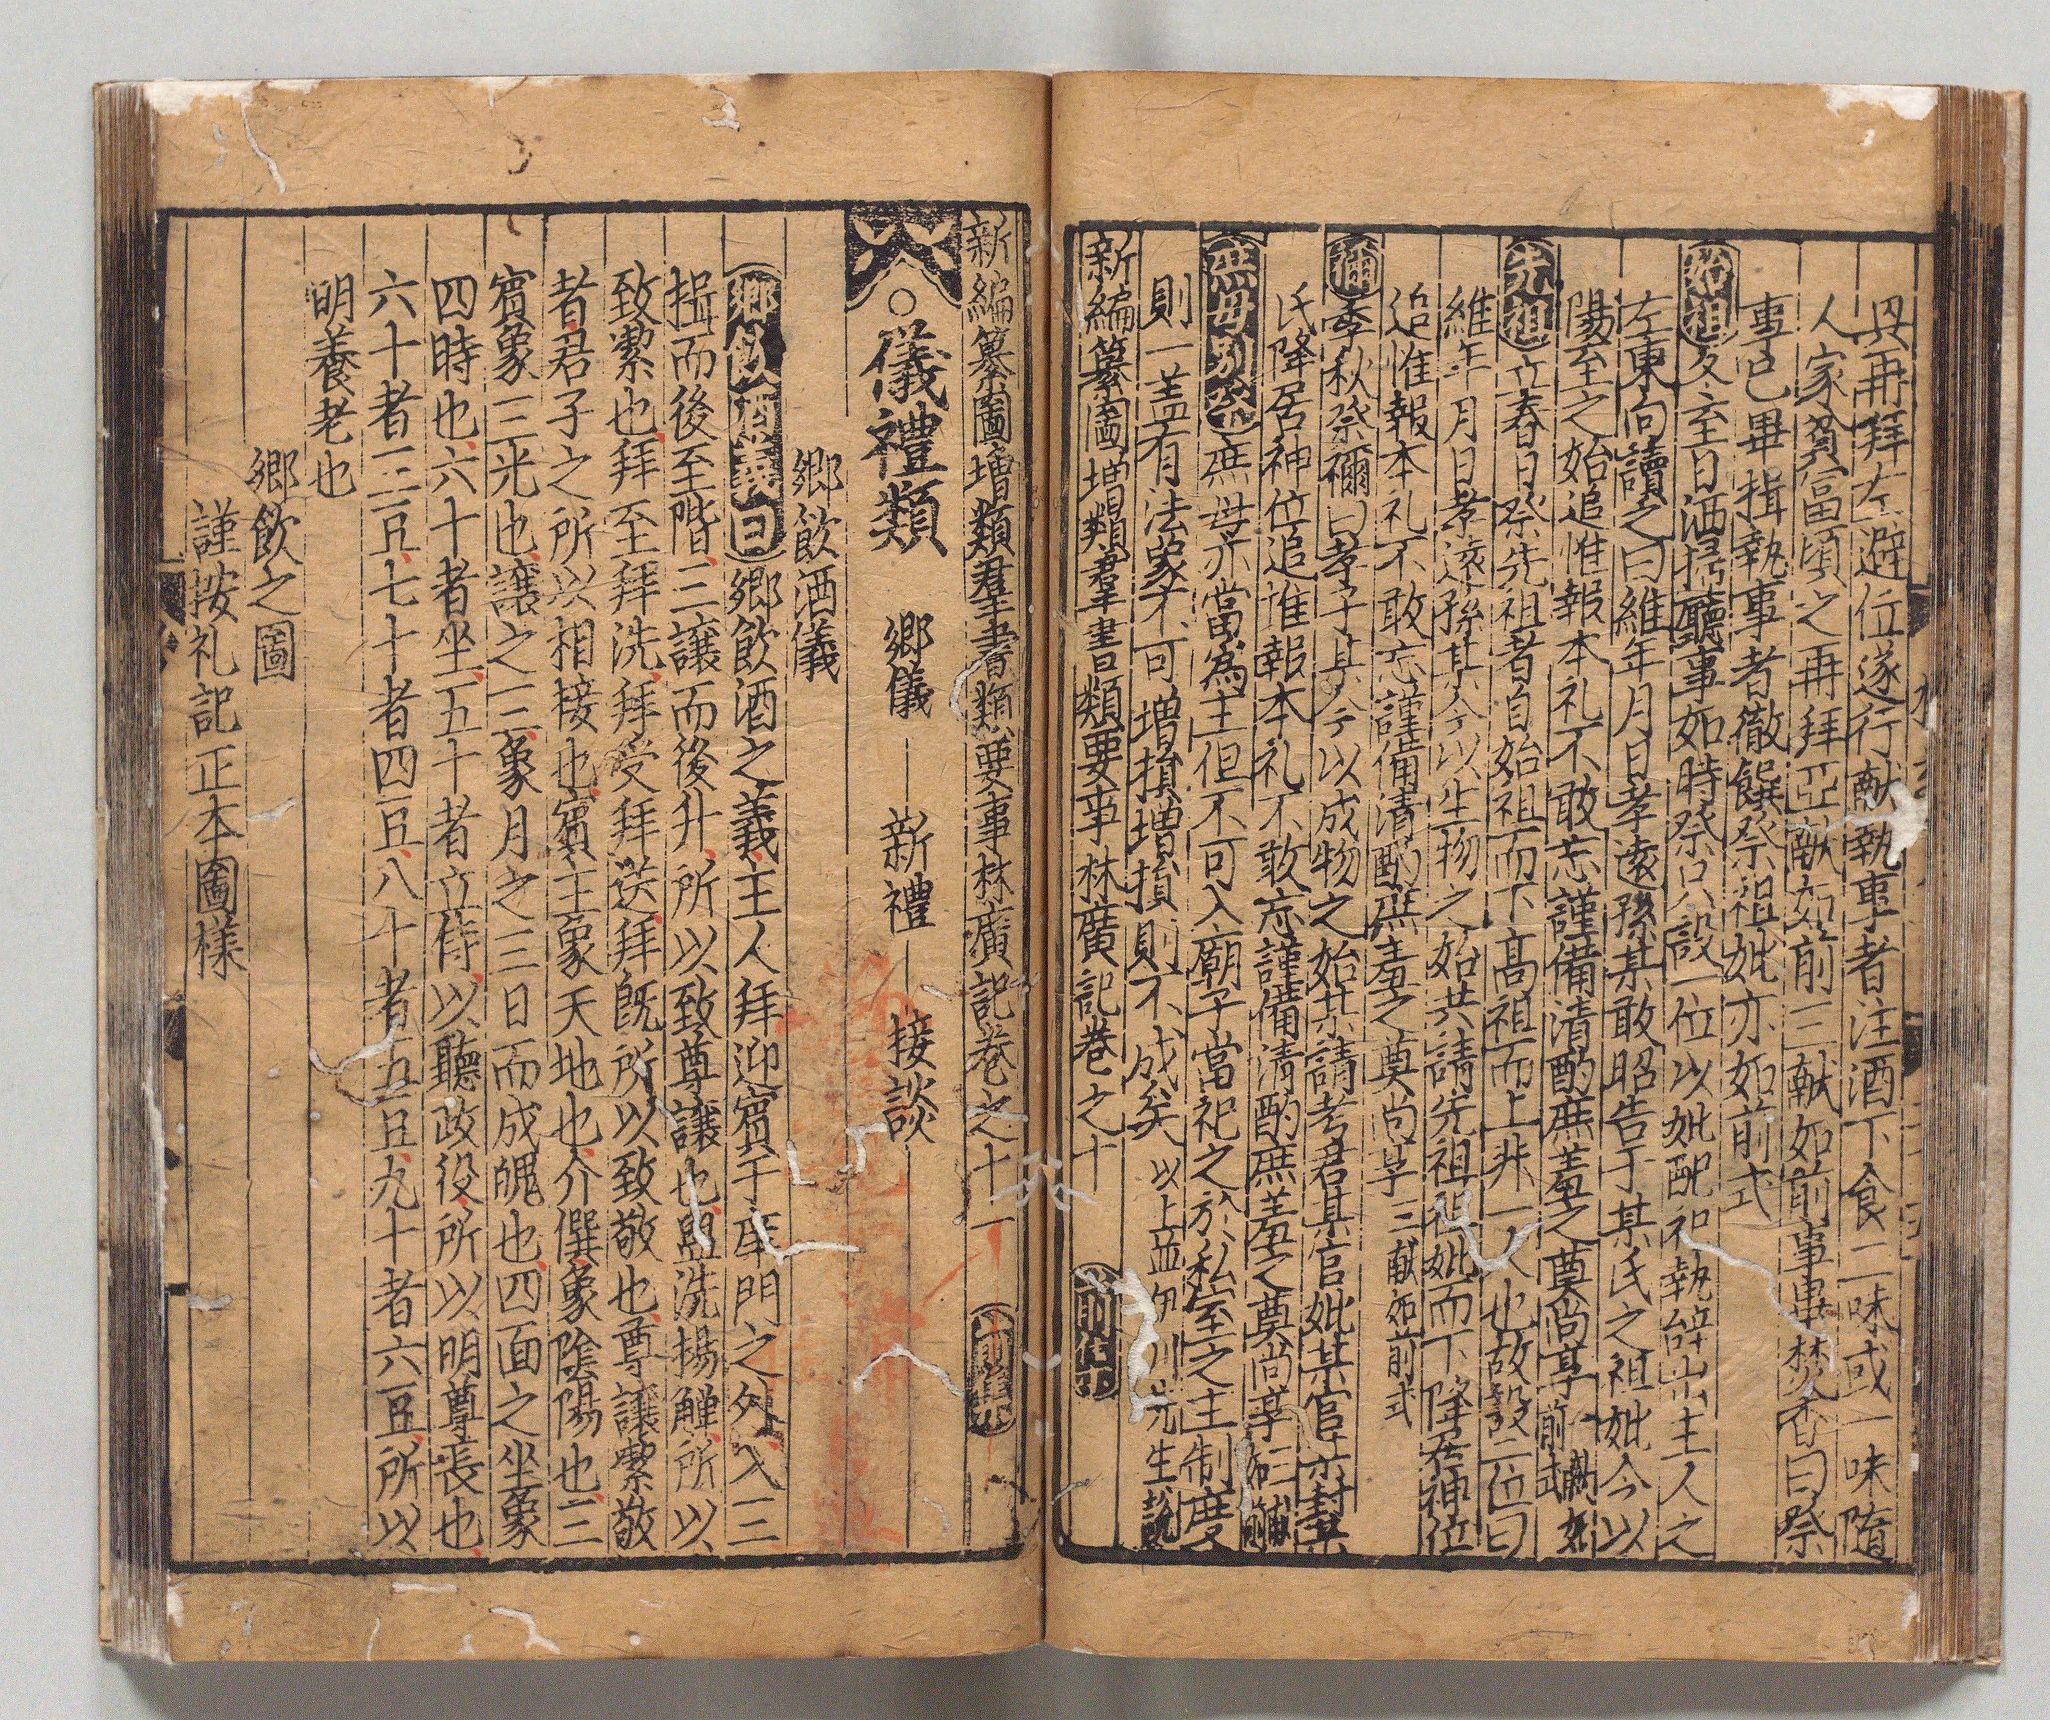 畢再拜左避位遂行献執事者注酒下食二味或一味隨
人家貧富頃之再拜亞献如前三献如前事畢焚香曰祭
事已畢揖執事者徹饌祭祖妣亦如前式
始祖冬至日洒掃廳事如時祭只設一位以妣配祀執辞出主人之
左東向讀之曰維年月日孝遠孫某敢昭告于某氏之祖妣今以
陽至之始追惟報本礼不敢忘謹備清酌庶羞之奠尚享三献如前式
先祖立春日祭先祖者自始祖而下高祖而上非一人也故設二位曰
維年月日孝遠孫某今以生物之始共請先祖祖妣而下降居神位
追惟報本礼不敢忘謹備清酌庶羞之奠尚享三献如前式
禰季秋祭禰曰孝子某今以成物之始恭請考君某官妣某官某封某
氏降居神位追惟報本礼不敢忘謹備清酌庶羞之奠尚享三献如前
無毋别祭庶毋亦當為主但不可入廟子當祀之於私室之主制度
則一蓋有法象不可增損增損則不成矣以上並伊川先生說
新編纂圖増類羣書類要事林廣記卷之十 前集
新編纂圖増類羣書類要事林廣記卷之十一 前集
○儀禮類 鄉儀 新禮 接談
鄉飲酒儀
鄉飲酒義曰鄉飲酒之義主人拜迎賓于庠門之外入三
揖而後至階三讓而後升所以致尊讓也盥洗揚觶所以
致絜也拜至拜洗拜受拜送拜旣所以致敬也尊讓絜敬
者君子之所以相接也賓主象天地也介僎象陰陽也三
賓象三光也讓之三象月之三日而成魄也四面之坐象
四時也六十者坐五十者立侍以聽政役所以明尊長也
六十者三豆七十者四豆八十者五豆九十者六豆所以
明養老也
鄉飲之圖
謹按礼記正本圖樣